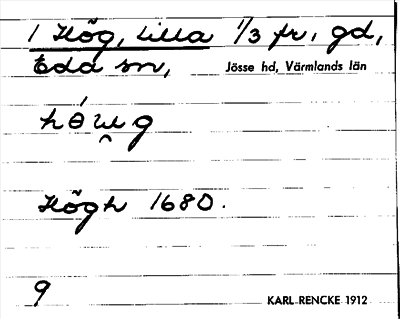 1 Hög, Lilla 1/3 fr. gd,
Eda sn, Jösse hd, Värmlands län
Högh 1680.
9
KARL RENCKE 1912